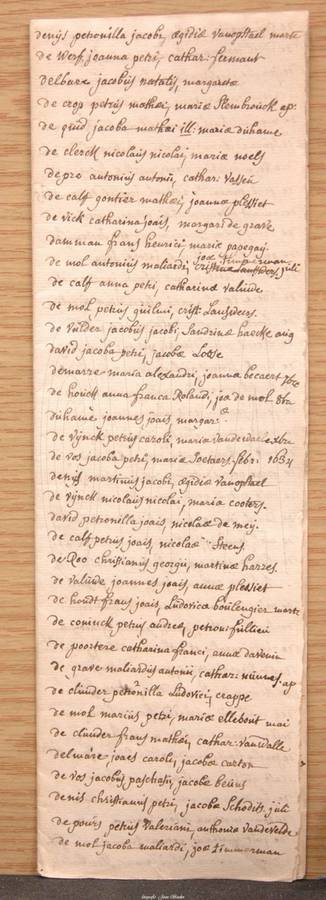 denijs petronilla jacobi, ægidiæ vanopstael marte
de Werf joanna petri, cathar: fermaut
delbaze jacobus natalis, margareta
de crop petrus mathei, mariæ Stembrouck ap:
de quid jacoba mathæi ill: mariæ duhame
de clerck nicolaus nicolai, mariæ noels
de pre antonius antonii, cathar:
de calf gontier mathei, joannæ plessiet
de vick catharina joais, margar: de grave
damman frans henrici, mariæ papegay.
joæ Timmerman
de mol antonius maliardi, juli
de calf anna petri, catharinæ valinde
de mol petrus guilmi, crist: Lansders.
de vulder jacobus jacobi, Sandrinæ haecke aug
david jacoba petri, jacobæ Lotse
demarre maria alexandri, joannæ becaert 7bre
de houck anna franca Rolandi, joa de mol 8ba
duhame joannes joais, margar:
de vijnck petrus caroli, maria vanderdae exbre
de vos jacoba petri, mariæ Soetaers. febr: 1634
denijs martinus jacobi, ægidiæ vanopstael
de vijnck nicolaus nicolai, maria cooters.
david petronilla joais, nicolaæ de mey.
de calf petrus joais, nicolaæ Steens
de Roo christianus georgii, martinæ harzes.
de valinde joannes joais, annæ plessiet
de houdt frans joais, Ludovicæ boulengier marte
de coninck petrus andreæ, petron: fillieu
de poortere catharina franci, annæ davenin
de grave maliardus antonii, cathar: nunnes. ap
de clunder petronilla Ludovici, crappe
de mol marinus petri, mariæ Ellebout mai
de clunder frans mathei, cathar: vandWalle
delmare joaes caroli, jacobæ carton
de vos jacobus paschasii, jacobæ beuns
denis christianus petri, jacobæ Schodits juli
de pours petrus Valeriani, anthonia vandevelde
de mol jacoba maliardi, joæ Timmerman